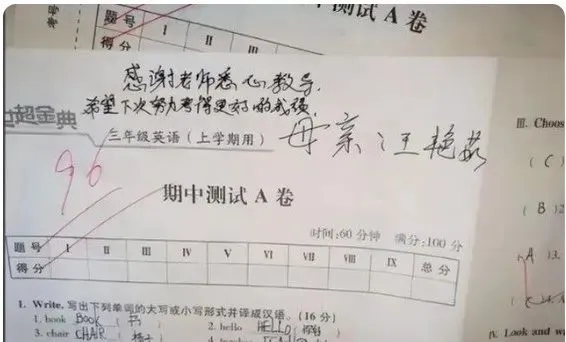 测试 A 卷
题 号 I II
得 分
感谢老师悉心教导,
希望下次努力考得更好的成绩
超金典
三年级英语(上学期用)
母亲汪艳茹
96
期中测试 A 卷
时间:60 分钟 满分:100 分
题 号 I II III IV V VI VII VIII IX 总 分
得 分
I. Write. 写出下列单词的大写或小写形式并译成汉语。(16 分)
1. book BOOK ( 书
2. hello HELLO (
3. chair CHAIR ( 椅子
III. Choos
( C )
( B ) 2
A ) 3.
IV. Look and w